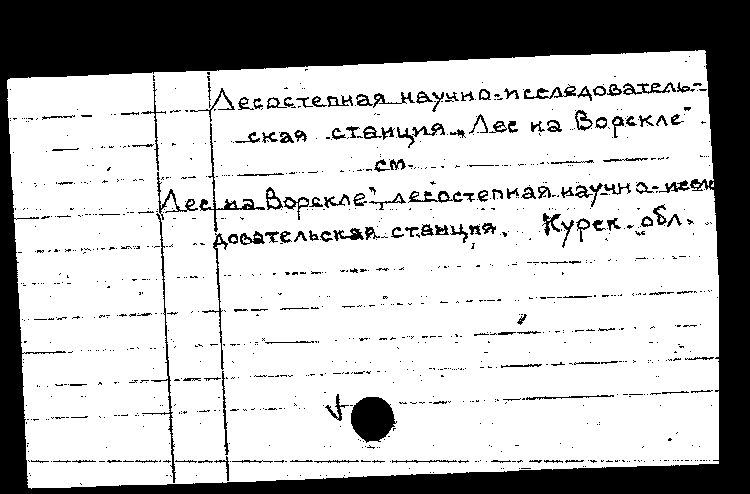 Лесостепная научно-исследователь-
ская станция „Лес на Ворскле"
см.
Лес на Ворскле", лесостепная научно-иссле
довательская станция. Курск. обл.